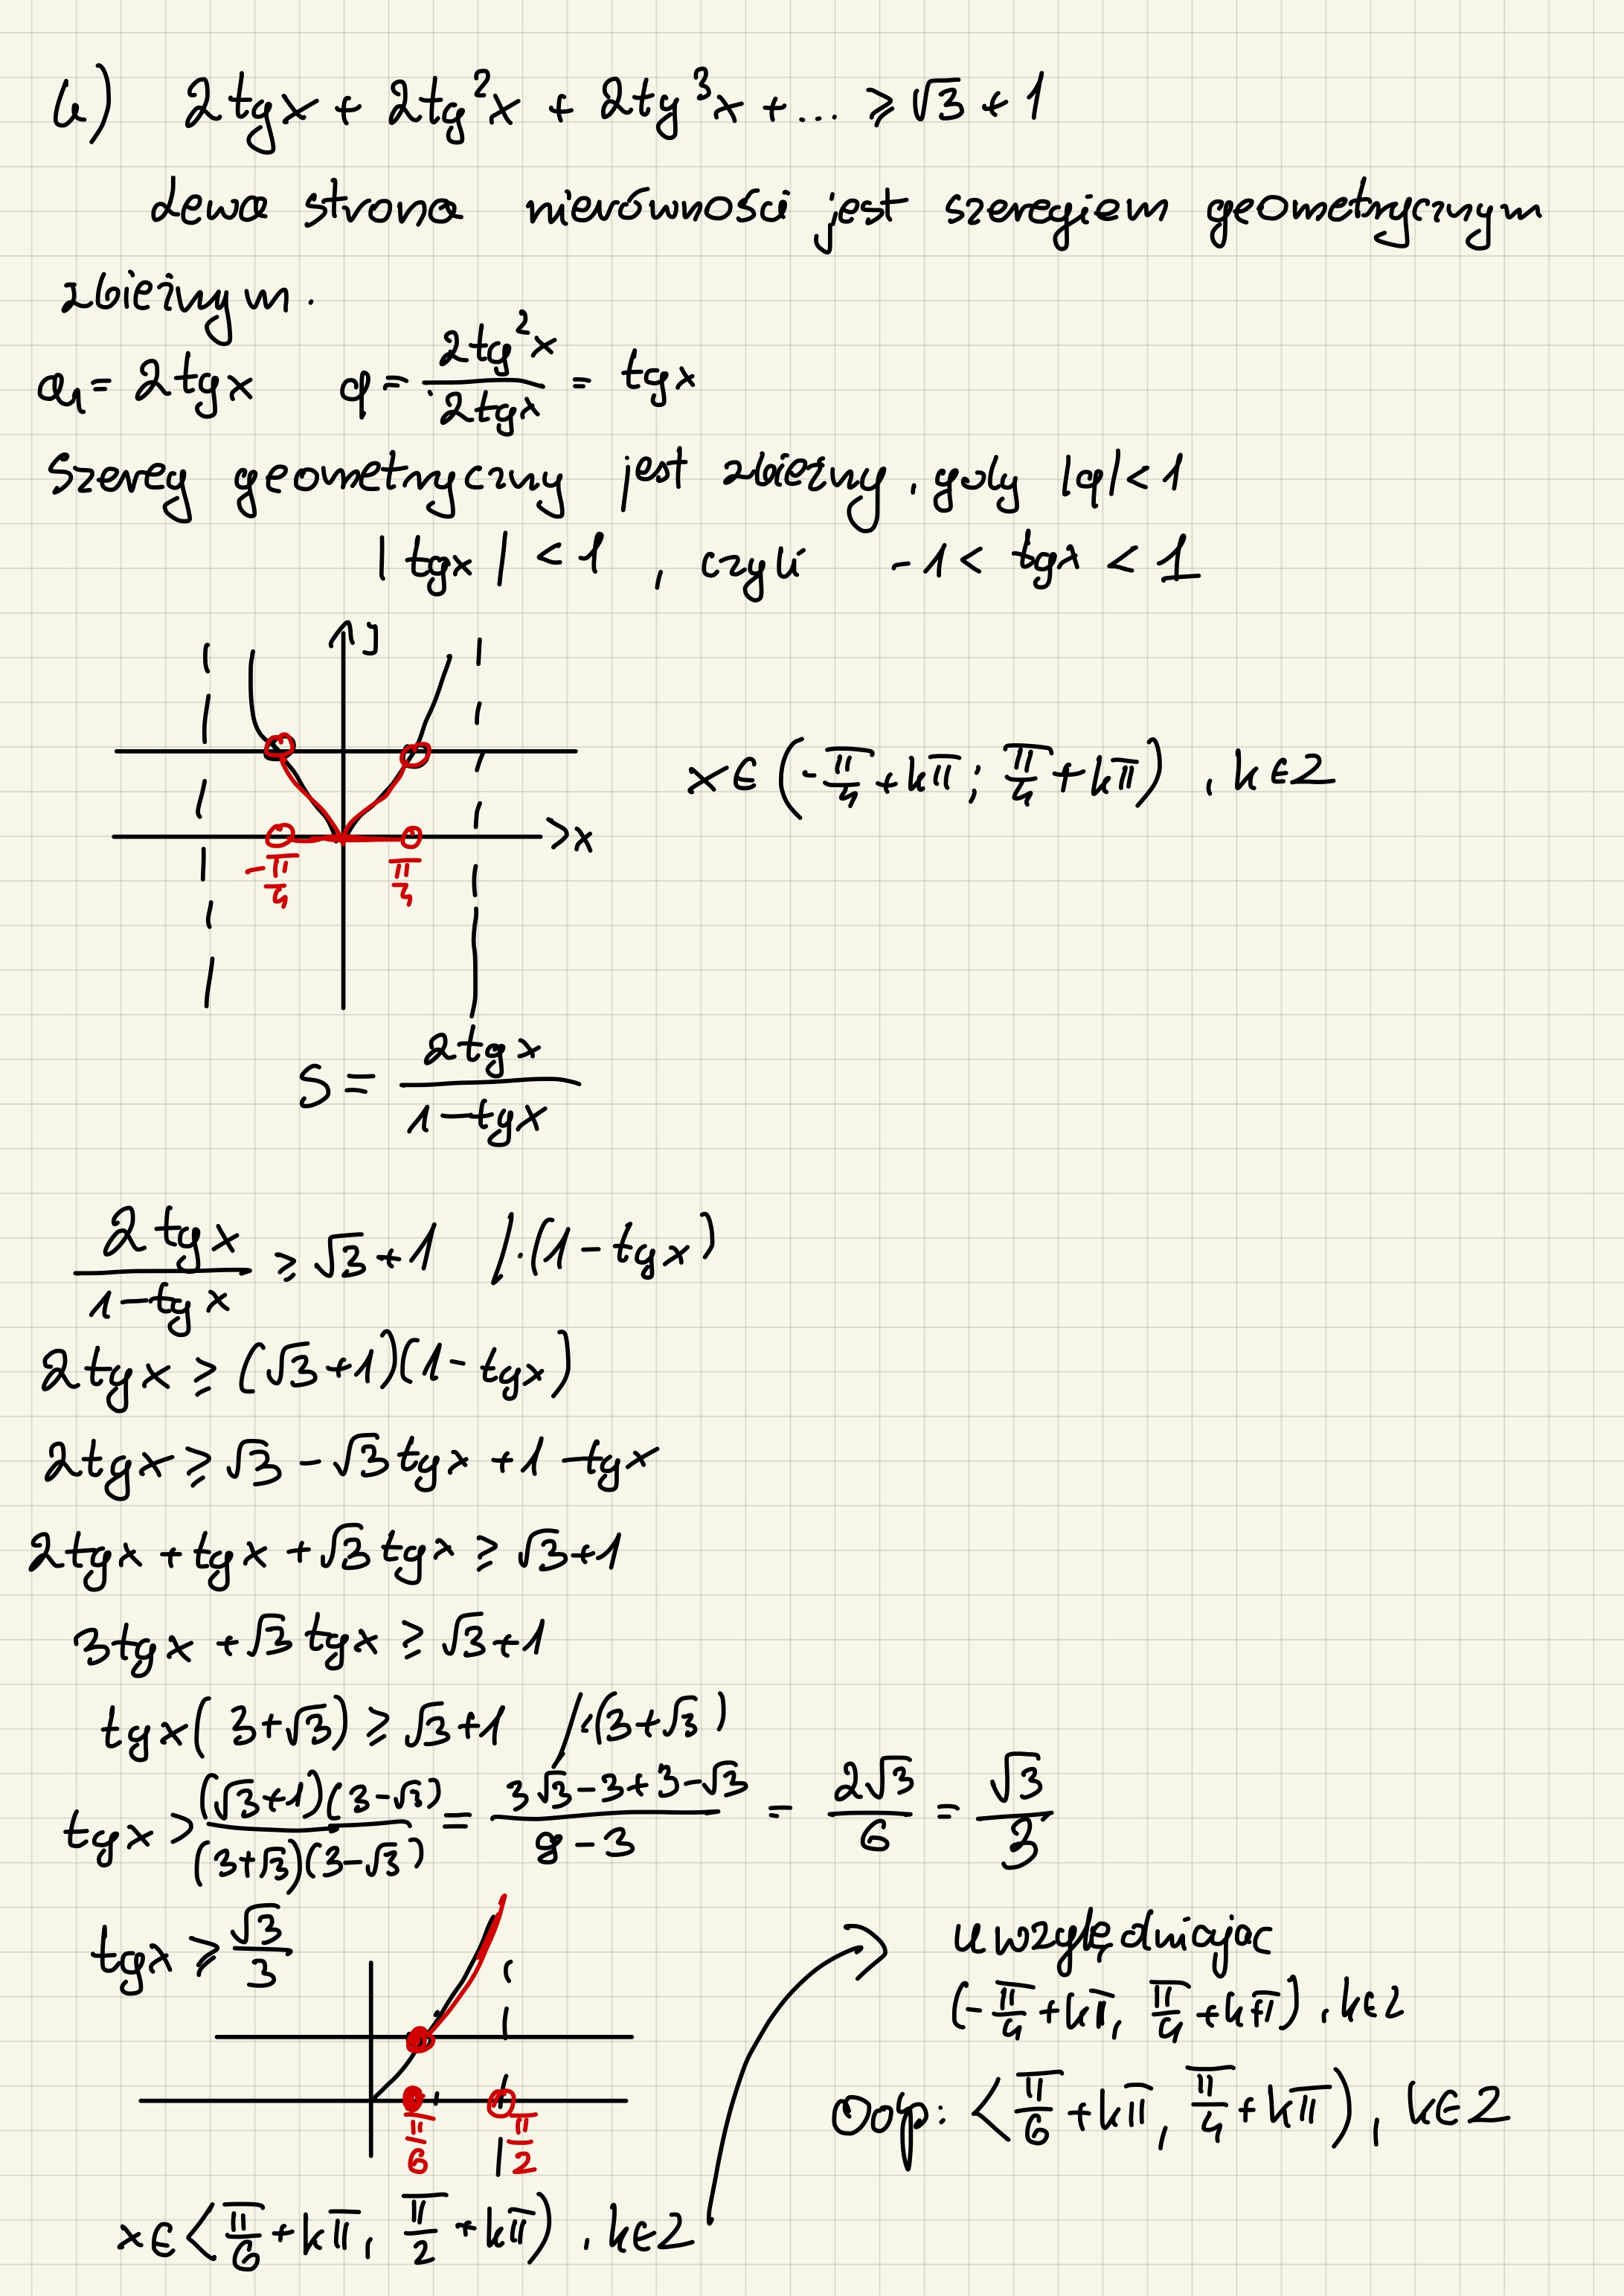 b) 2tgx + 2tg²x + 2tg³x + ... ⩾ √3 + 1
Lewa strona nierówności jest szeregiem geometrycznym
zbieżnym.
a₁ = 2tgx q = 2tg²x / 2tgx = tgx
Szereg geometryczny jest zbieżny, gdy |q| < 1
|tgx| < 1 , czyli -1 < tgx < 1
y
x ∈ (-π/4 + kπ; π/4 + kπ) , k ∈ Z
x
-π/4 π/4
S = 2tgx / 1-tgx
2tgx / 1-tgx ⩾ √3 + 1 /·(1 - tgx)
2tgx ⩾ (√3+1)(1 - tgx)
2tgx ⩾ √3 - √3tgx + 1 - tgx
2tgx + tgx + √3tgx ⩾ √3+1
3tgx + √3tgx ⩾ √3+1
tgx(3+√3) ⩾ √3+1 /:(3+√3)
tgx > (√3+1)(3-√3) / (3+√3)(3-√3) = 3√3-3+3-√3 / 9-3 = 2√3/6 = √3/3
tgx ⩾ √3/3
π/6 π/2
x ∈ <π/6 + kπ, π/2 + kπ) , k ∈ Z
uwzględniając
(-π/4 + kπ, π/4 + kπ) , k ∈ Z
Odp: <π/6 + kπ, π/4 + kπ) , k ∈ Z